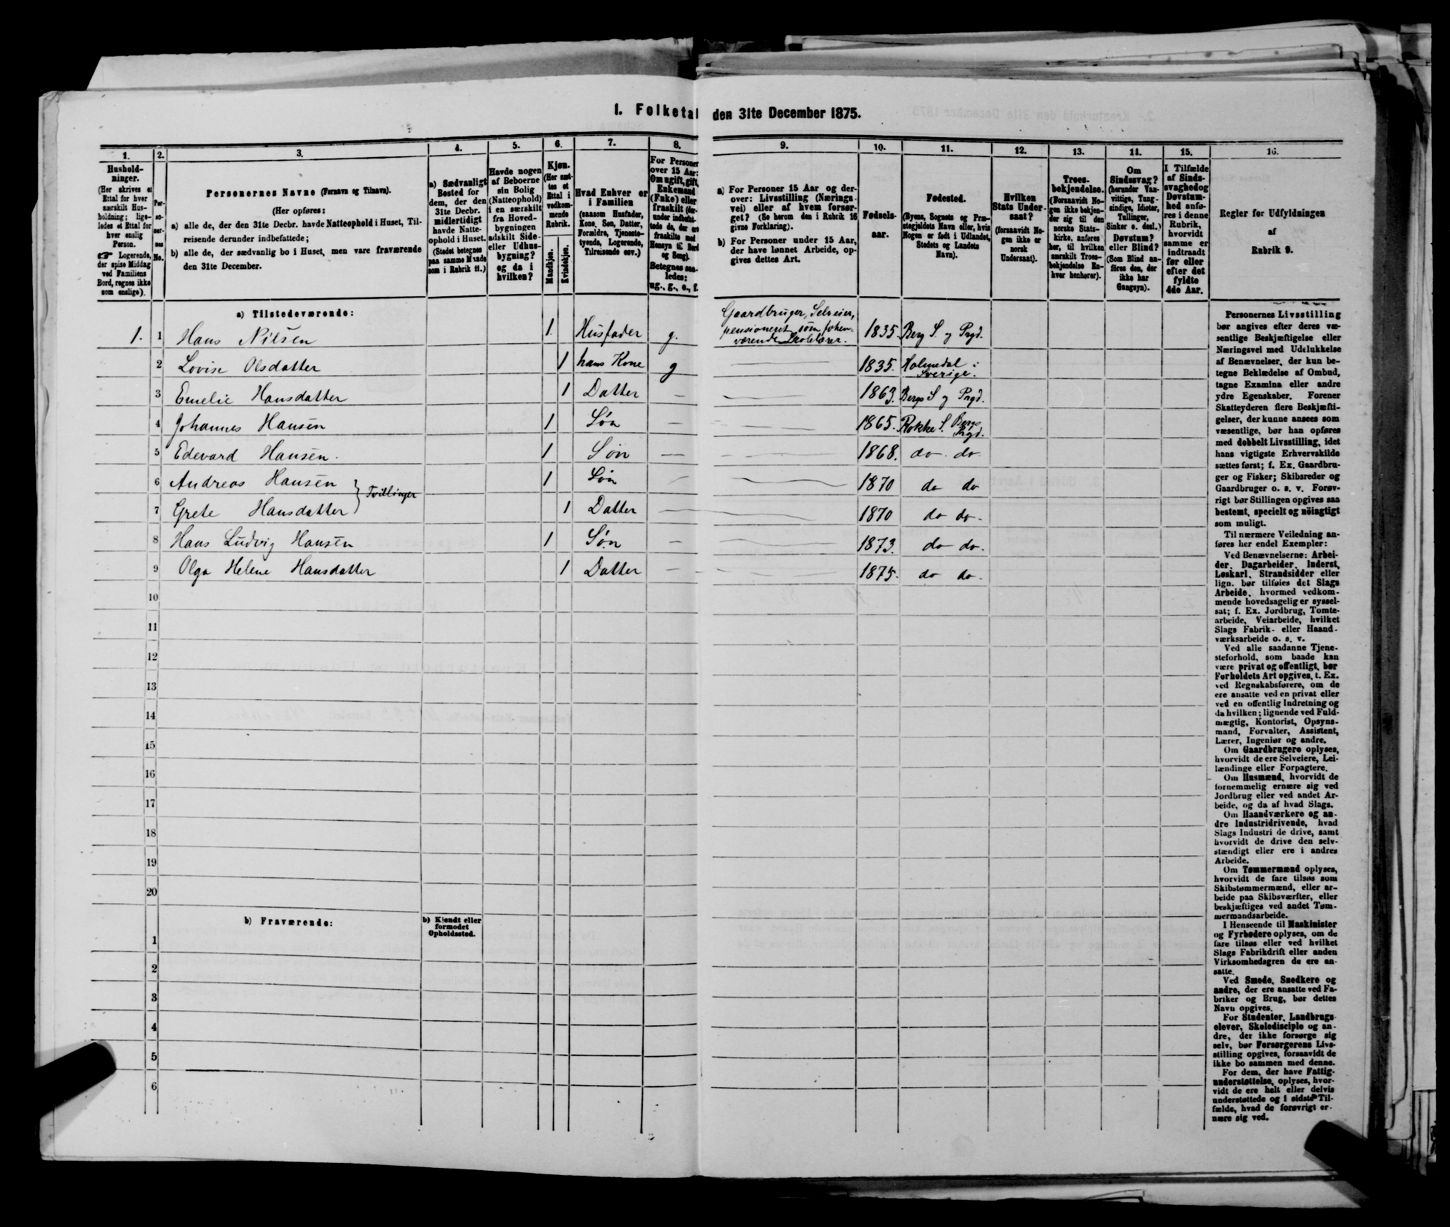 I. Folketal den 31te December 1875.
1.
Hushold-
ninger.
(Her skrives et
Ettal for hver
særskilt Hus-
holdning; lige-
ledes et Ettal for
hver enslig
Person.
☞ Logerende,
der spise Middag
ved Familiens
Bord, regnes ikke
som enslige).
2.
Per-
so-
ner-
nes
No.
3.
Personernes Navne (Fornavn og Tilnavn).
(Her opføres:
a) alle de, der den 31te Decbr. havde Natteophold i Huset, Til-
reisende derunder indbefattede;
b) alle de, der sædvanlig bo i Huset, men vare fraværende
den 31te December.
4.
a) Sædvanligt
Bosted for
dem, der den
31te Decbr.
midlertidigt
havde Natte-
ophold i Huset.
(Stedet betegnes
paa samme Maade
som i Rubrik 11.)
5.
Havde nogen
af Beboerne
sin Bolig
(Natteophold)
i en særskilt
fra Hoved-
bygningen
adskilt Side-
eller Udhus-
bygning?
og da i
hvilken?
6.
Kjøn.
(Her sæt-
tes et
Ettal i
vedkom-
mende
Rubrik.
Mandkjøn.
Kvindekjøn.
7.
Hvad Enhver er
i Familien
(saasom Husfader,
Kone, Søn, Datter,
Forældre, Tjeneste-
tyende, Logerende,
Tilreisende osv.)
8.
For Personer
over 15 Aar:
Om ugift, gift,
Enkemand
(Enke) eller
fraskilt
Betegnes saa-
ledes:
ug., g., e., f.
9.
a) For Personer 15 Aar og der-
over: Livsstilling (Nærings-
vei) eller af hvem forsør-
get? (Se herom den i Rubrik 16
givne Forklaring).
b) For Personer under 15 Aar,
der have lønnet Arbeide, op-
gives dettes Art.
10.
Fødsels-
aar.
11.
Fødested.
(Byens, Sognets og Præ-
stegjeldets Navn eller, hvis
Nogen er født i Udlandet,
Stedets og Landets
Navn).
12.
Hvilken
Stats Under-
saat?
(forsaavidt No-
gen ikke er
norsk
Undersaat).
13.
Troes-
bekjendelse.
(Forsaavidt No-
gen ikke bekjen-
der sig til den
norske Stats-
kirke, anføres
her, til hvilken
særskilt Troes-
bekjendelse En-
hver henhører).
14.
Om
Sindssvag?
(herunder Van-
vittige, Tung-
sindige, Idioter,
Tullinger,
Sinker o. desl.)
Døvstum?
eller Blind?
(Som Blind an-
føres den, der
ikke har
Gangsyn).
15.
I Tilfælde
af Sinds-
svaghed og
Døvstum-
hed anfø-
res i denne
Rubrik,
hvorvidt
samme er
indtraadt
før eller
efter det
fyldte
4de Aar.
16.
Regler for Udfyldningen
af
Rubrik 9.
a) Tilstedeværende:
1. 1 Hans Nilsen 1 Husfader g. Gaardbruger, Selveier, pensioneret som forhen- værende Skolelærer. 1835. Berg S. og Prgd.
2 Lovise Olsdatter 1 hans Kone g 1835. Holmedal i Sverige.
3 Emelie Hansdatter 1 Datter — 1863. Bergs S og Prgd.
4 Johannes Hansen 1 Søn — 1865. Rokke S. Bergs Prgd.
5 Edevard Hansen. 1 Søn — 1868. do do
6 Andreas Hansen } Tvillinger 1 Søn — 1870 do do
7 Grete Hansdatter 1 Datter — 1870 do do.
8 Hans Ludvig Hansen 1 Søn — 1873. do do.
9 Olga Helene Hansdatter 1 Datter — 1875. do do.
10
11
12
13
14
15
16
17
18
19
20
b) Fraværende:
b) Kjendt eller
formodet
Opholdssted.
1
2
3
4
5
6
Personernes Livsstilling
bør angives efter deres væ-
sentlige Beskjæftigelse eller
Næringsvei med Udelukkelse
af Benævnelser, der kun be-
tegne Beklædelse af Ombud,
tagne Examina eller andre
ydre Egenskaber. Forener
Skatteyderen flere Beskjæfti-
gelser, der kunne ansees som
væsentlige, bør han opføres
med dobbelt Livsstilling, idet
hans vigtigste Erhvervskilde
sættes først; f. Ex. Gaardbru-
ger og Fisker; Skibsreder og
Gaardbruger o. s. v. Forøv-
rigt bør Stillingen opgives saa
bestemt, specielt og nøiagtigt
som muligt.
Til nærmere Veiledning an-
føres her endel Exempler:
Ved Benævnelserne: Arbei-
der, Dagarbeider, Inderst,
Løskarl, Strandsidder eller
lign. bør tilføies det Slags
Arbeide, hvormed vedkom-
mende hovedsagelig er syssel-
sat; f. Ex. Jordbrug, Tomte-
arbeide, Veiarbeide, hvilket
Slags Fabrik- eller Haand-
værksarbeide o. s. v.
Ved alle saadanne Tjene-
steforhold, som baade kan
være privat og offentligt, bør
Forholdets Art opgives, t. Ex.
ved Regnskabsførere, om de
ere ansatte ved en privat eller
ved en offentlig Indretning og
da hvilken; lignende ved Fuld-
mægtig, Kontorist, Opsyns-
mand, Forvalter, Assistent,
Lærer, Ingeniør og andre.
Om Gaardbrugere oplyses,
hvorvidt de ere Selveiere, Lei-
lændinge eller Forpagtere.
Om Husmænd, hvorvidt de
fornemmelig ernære sig ved
Jordbrug eller ved andet Ar-
beide, og da af hvad Slags.
Om Haandværkere og an-
dre Industridrivende, hvad
Slags Industri de drive, samt
hvorvidt de drive den selv-
stændigt eller ere i andres
Arbeide.
Om Tømmermænd oplyses,
hvorvidt de fare tilsøs som
Skibstømmermænd, eller ar-
beide paa Skibsværfter, eller
beskjæftiges ved andet Tøm-
mermandsarbeide.
I Henseende til Maskinister
og Fyrbødere oplyses, om de
fare tilsøs eller ved hvilket
Slags Fabrikdrift eller anden
Virksomhedsgren de ere an-
satte.
Ved Smede, Snedkere og
andre, der ere ansatte ved Fa-
briker og Brug, bør dettes
Navn opgives.
For Studenter, Landbrugs-
elever, Skoledisciple og an-
dre, der ikke forsørge sig
selv, bør Forsørgerens Livs-
stilling opgives, forsaavidt de
ikke bo sammen med denne.
For dem, der have Fattig-
understøttelse, oplyses, hvor-
vidt de ere helt eller delvis
understøttede og i sidste Til-
fælde, hvad de forøvrigt er-
nære sig ved.